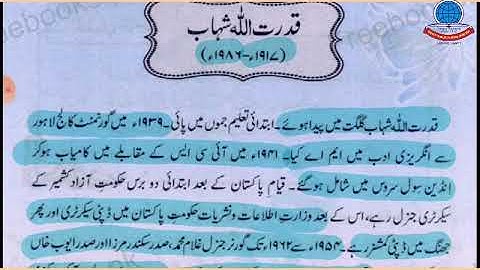 قدرت اللہ شہاب
(۱۹۱۷ء-۱۹۸۶ء)
قدرت اللہ شہاب گلگت میں پیدا ہوئے۔ ابتدائی تعلیم جموں میں پائی۔ ۱۹۳۹ء میں گورنمنٹ کالج لاہور
سے انگریزی ادب میں ایم اے کیا۔ ۱۹۴۱ء میں آئی سی ایس کے مقابلے میں کامیاب ہوکر
انڈین سول سروس میں شامل ہوگئے۔ قیام پاکستان کے بعد ابتدائی دو برس حکومت آزاد کشمیر کے
سیکرٹری جنرل رہے، اس کے بعد وزارتِ اطلاعات و نشریات حکومتِ پاکستان میں ڈپٹی سیکرٹری اور پھر
جھنگ میں ڈپٹی کمشنر رہے۔ ۱۹۵۴ء سے ۱۹۶۲ء تک گورنر جنرل غلام محمد، صدر سکندر مرزا اور صدر ایوب خاں